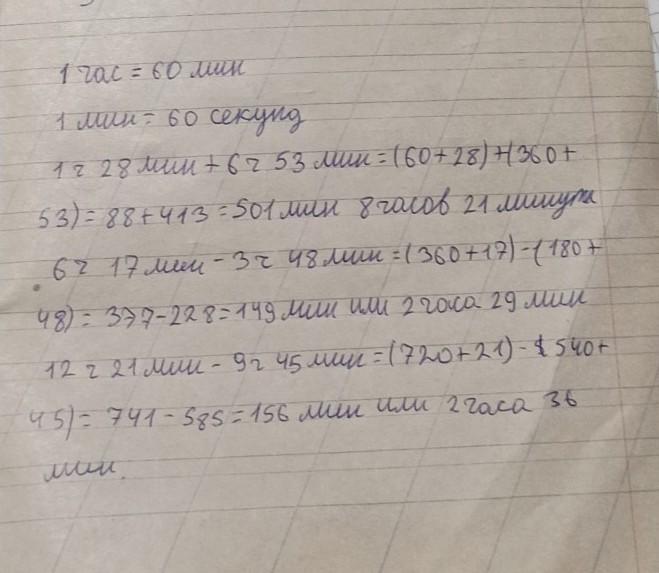 1 час = 60 мин
1 мин = 60 секунд
1 ч 28 мин + 6 ч 53 мин = (60 + 28) + (360 +
53) = 88 + 413 = 501 мин 8 часов 21 минута
6 ч 17 мин - 3 ч 48 мин = (360 + 17) - (180 +
48) = 377 - 228 = 149 мин или 2 часа 29 мин
12 ч 21 мин - 9 ч 45 мин = (720 + 21) - ( 540 +
45) = 741 - 585 = 156 мин или 2 часа 36
мин.